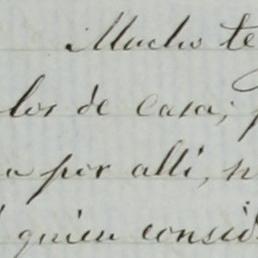 Mucho te
los de casa; p
a por alli, n
quien consid